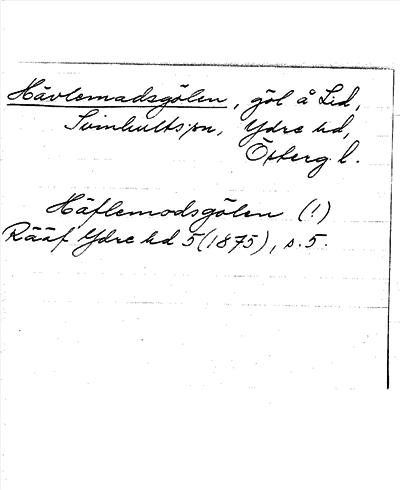 Hävlemadsgölen, göl å Lid,
Svinhults sn, Ydre hd,
Österg. l.
Häflemodsgölen (!)
Rääf Ydre hd 5(1875), s. 5.